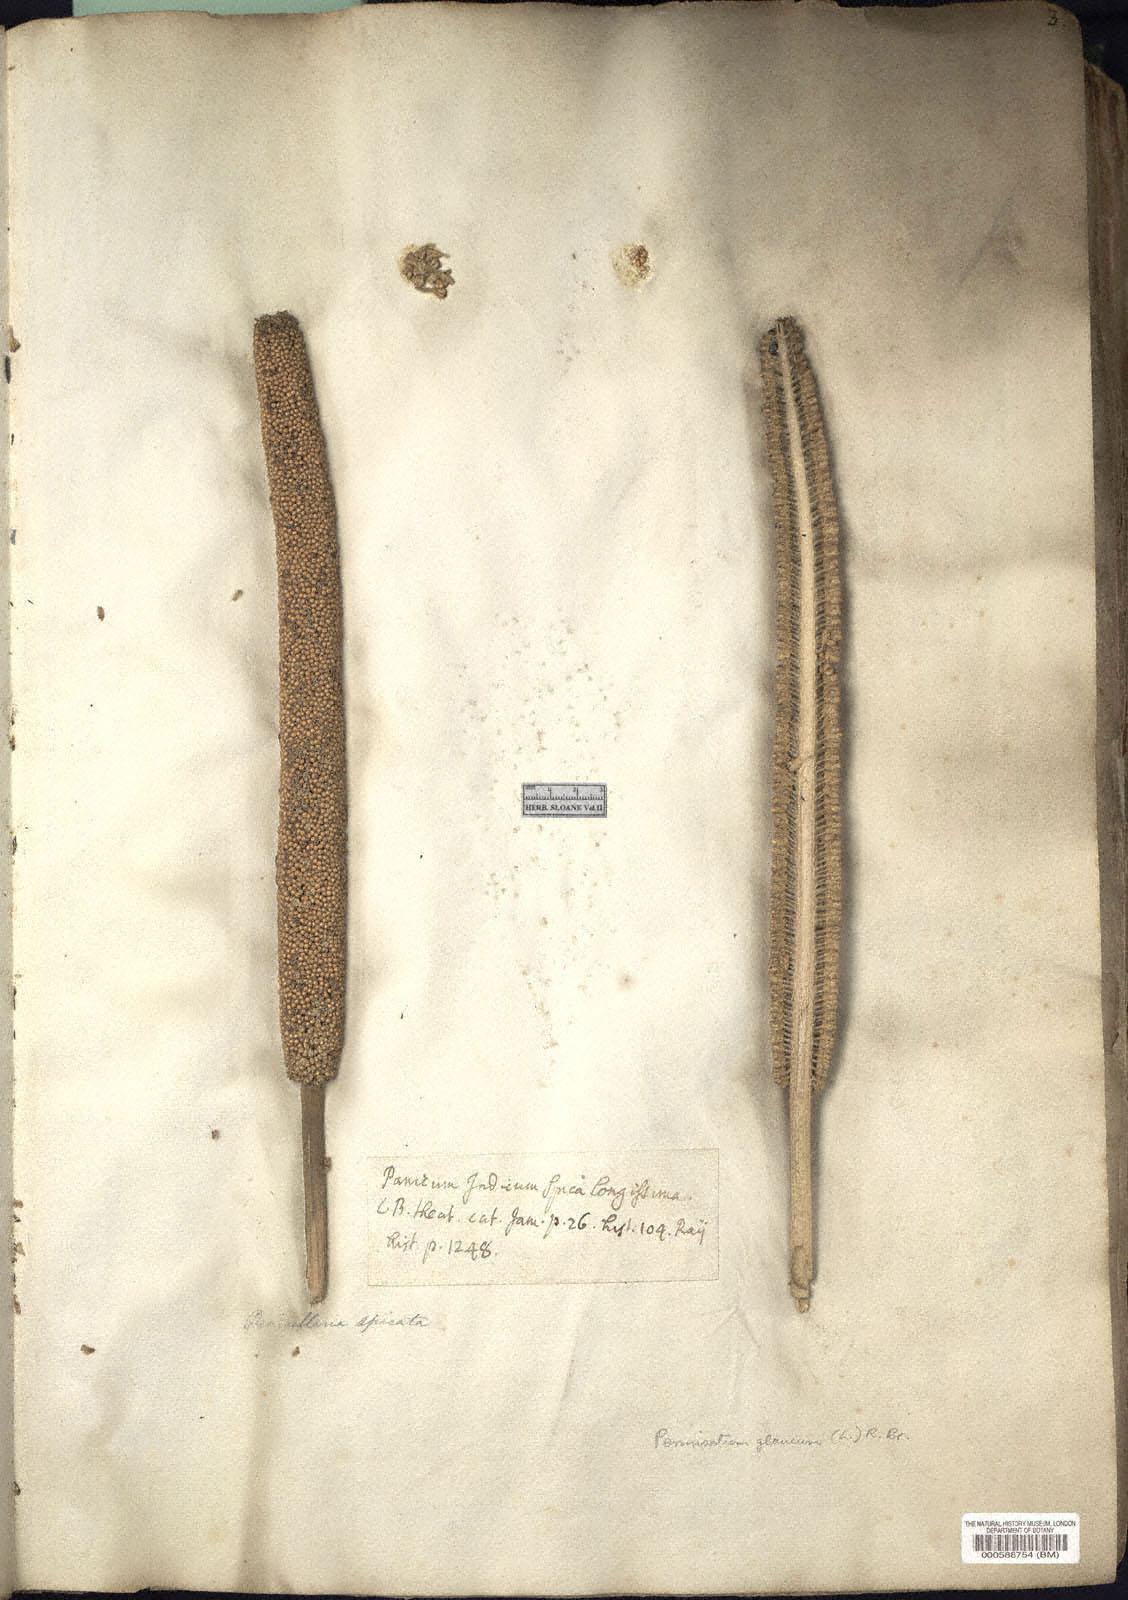 3.
HERB. SLOANE Vol.II
Panicum Indicum spica longissima.
C.B. theat. cat. Jam. p. 26. hist. 104. Raij
hist. p. 1248.
Penicillaria spicata
Pennisetum glaucum (L.) R. Br.
THE NATURAL HISTORY MUSEUM, LONDON
DEPARTMENT OF BOTANY
000586754 (BM)